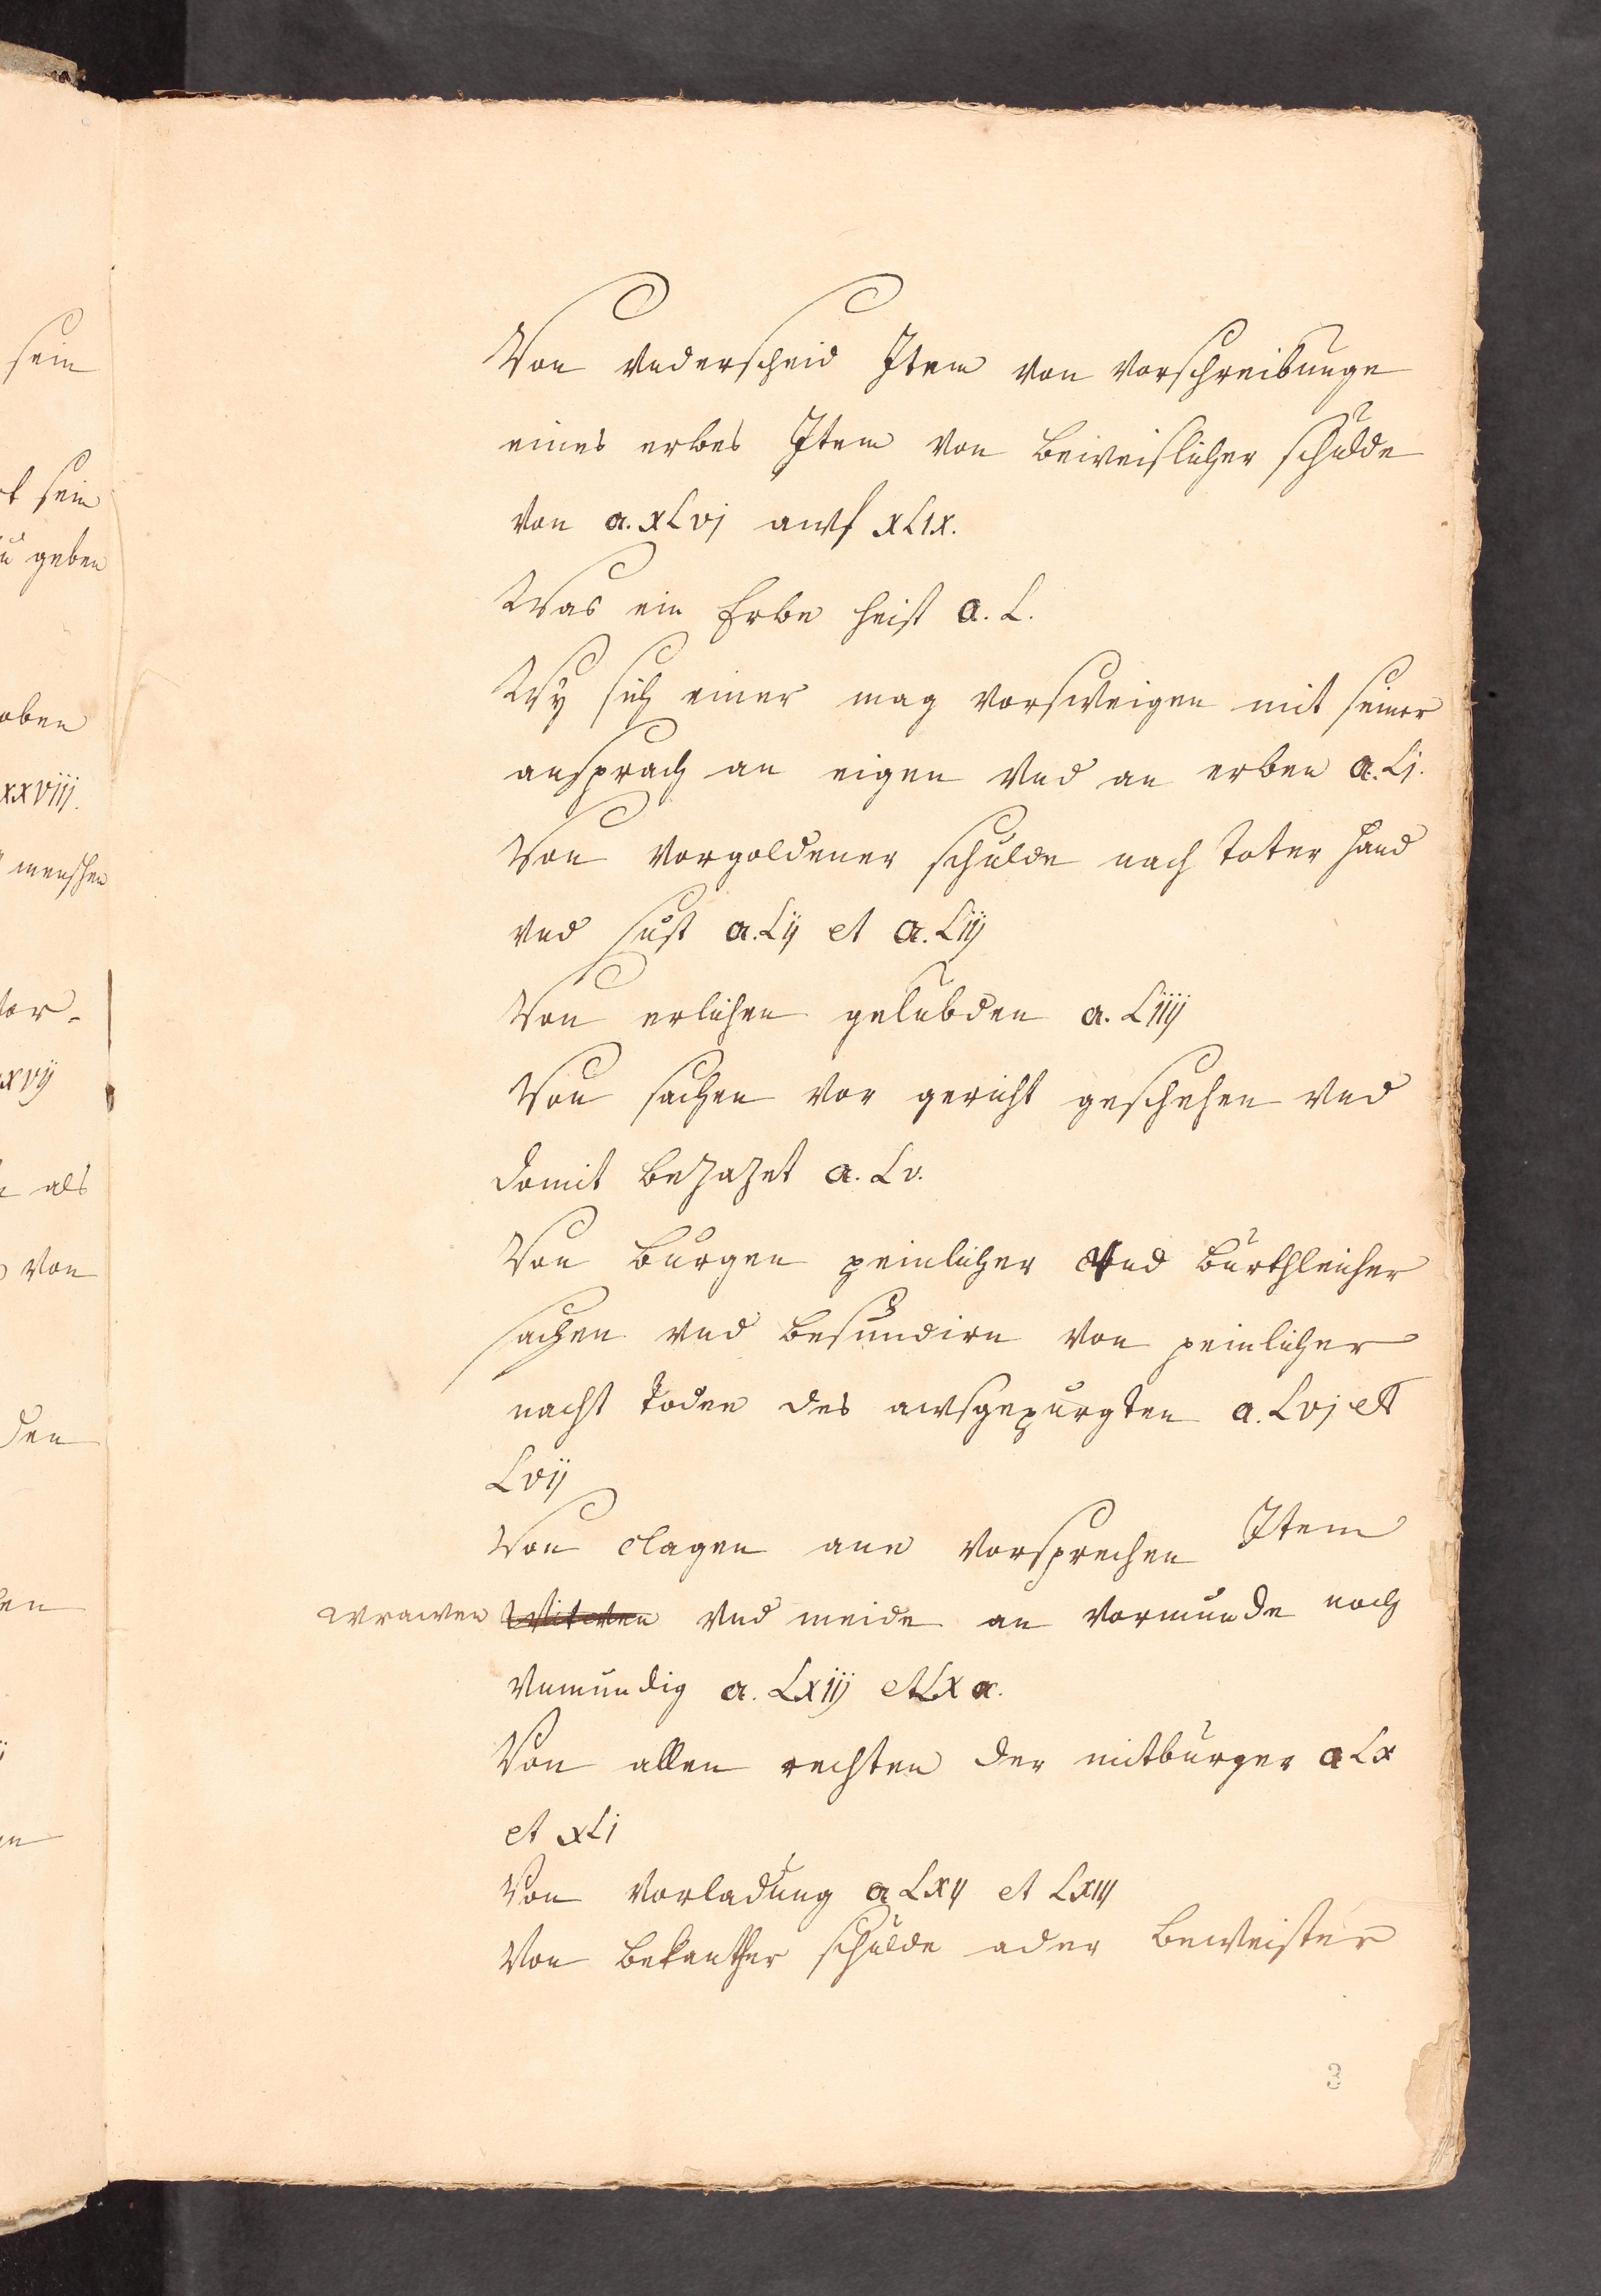 sein
t sein
u geben
oben
xxviij.
menschen
vor-
xvij
als
von
den
en
Von Vnderscheid Item von Vorschreibunge
eines erbes Item von beweislicher schulde
von a. xLvj awf xLix.
Was ein Erbe heist a. L.
Wÿ sich einer mag vorsweigen mit seiner
ansprach an eigen Vnd an erben a. Lj.
Von Vorgoldener schulde nach toter hand
vnd sust a. Lij et a. Liij
Von erlichen gelubden a. Liiij
Von sachen vor gericht geschehen vnd
domit bezazet a. Lv.
Von burgen peinlicher Vnd burthleicher
sachen vnd besundirn von peinlicher
nachst toden des awsgepurgten a. Lvj et
Lvij
Von clagen ane Vorsprechen Item
wrawen Witwen Vnd meide an Vormunde noch
Vnmundig a. Lxiij et Lx a.
Von allen rechten der mitburger a Lx
et xLj
Von Vorladung a Lxij et Lxiij
Von bekanther schulde ader beweister
3